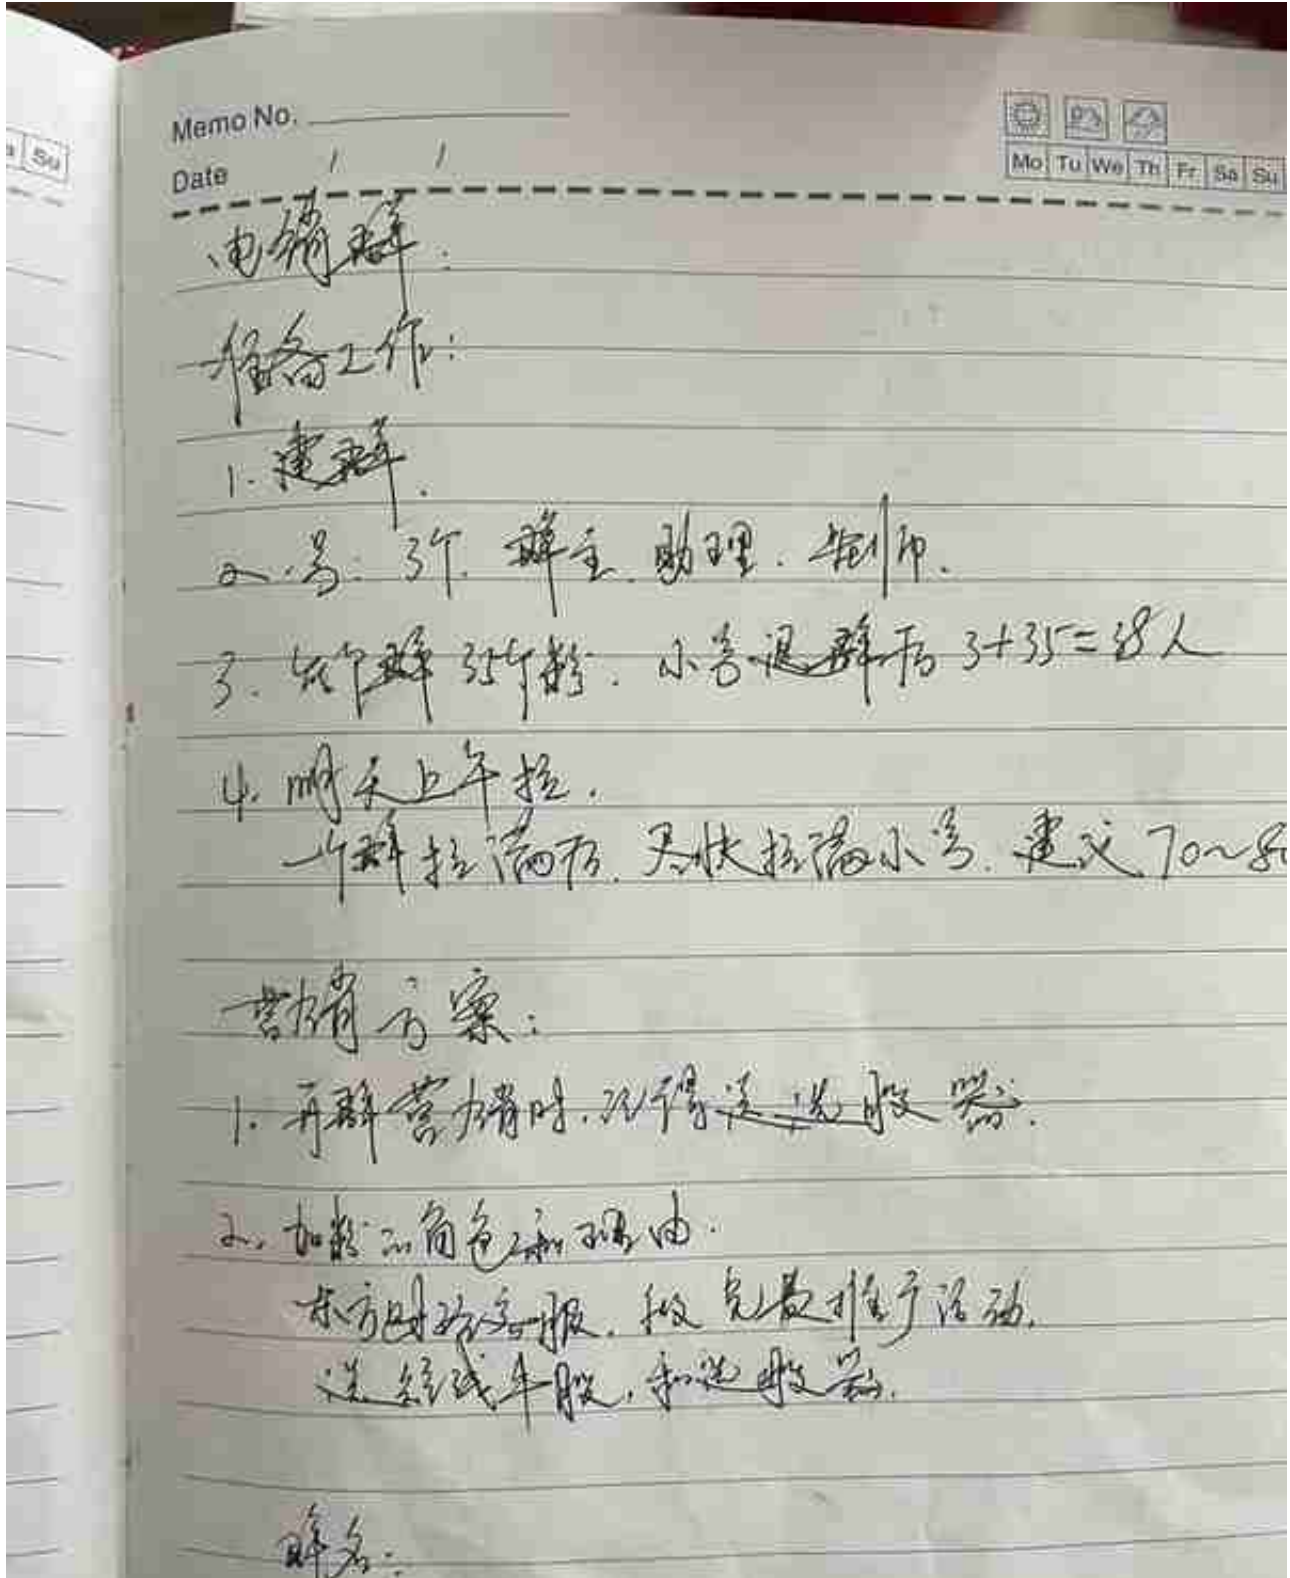 Su
Memo No.
Date / /
Mo Tu We Th Fr Sa Su
电销群:
准备工作:
1. 建群.
2. 号: 3个. 群主. 助理. 老师.
3. 每个群 35个粉. 小号退群后 3+35=38人
4. 明天上午拉.
一个群拉满后. 尽快拉满小号. 建议 70~80
营销方案:
1. 再群营销时. 记得送选股器.
2. 加粉的角色和理由.
东方财经客服. 免费推广活动.
送短线牛股. 和选股器.
群名: